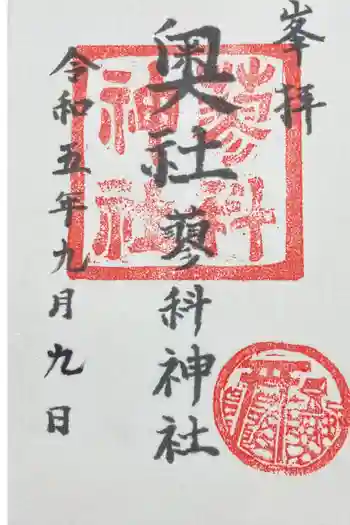 峯拝
奥社 蓼科神社
令和五年九月九日
蓼科
神社